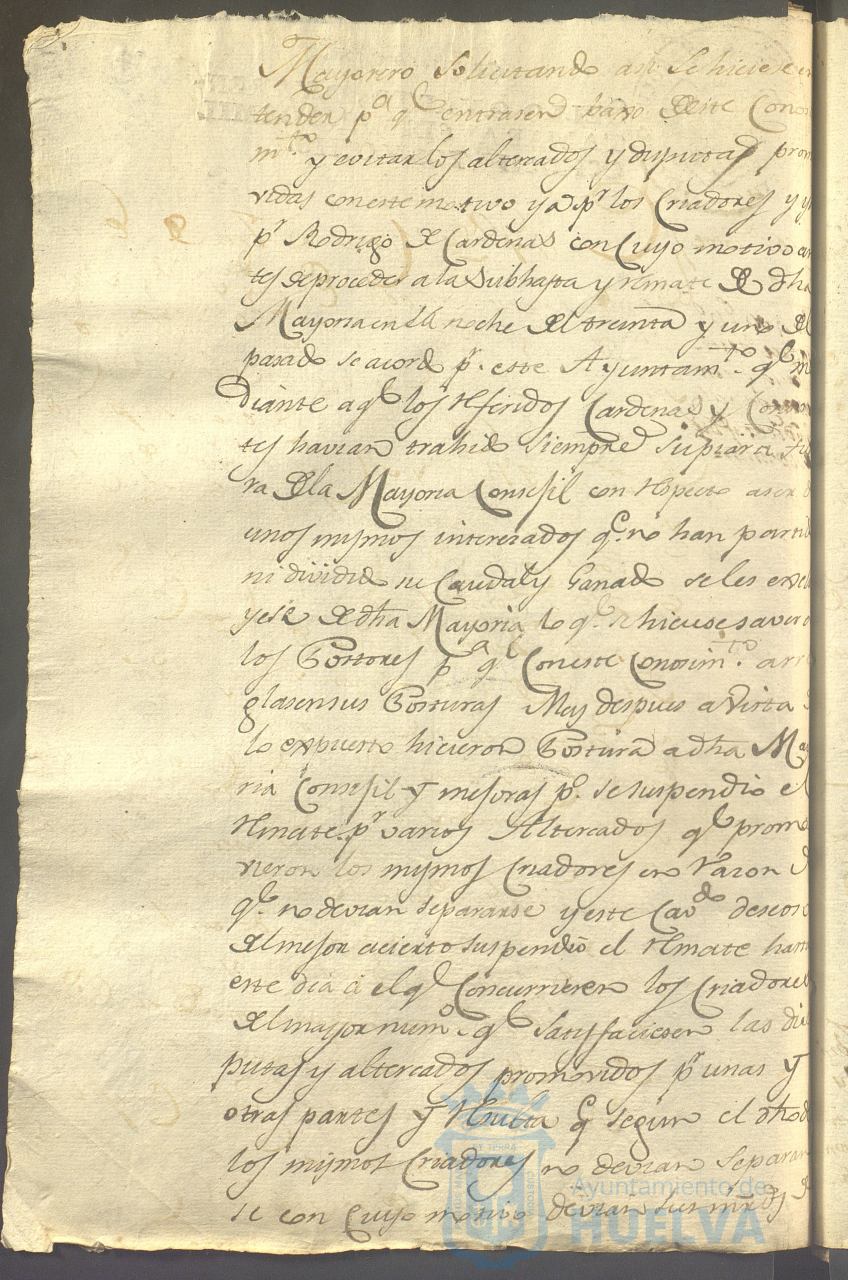 Mayorero solicitando asi se hiciese en
tender pa. qe. entrasen baxo de este Conosi
mto. y evitar los altercados y disputas promo
vidas con este motivo ya pr. los Criadores y ya
pr. Rodrigo de Cardenas con cuyo motivo an
tes de proceder a la Subhasta y remate de dha
Mayoria en la noche del treinta y uno del
pasado se acordó pr. este Ayuntamto. qe. me
diante a qe. los referidos Cardenas y Consor
tes havian trahido siempre su piara fue
ra de la Mayoria Consegil con respecto a ser
unos mismos interesados qe. no han partido
ni dividido su Caudal y Ganado se les exclu
yese de dha Mayoria lo qe. se hiciese saver a
los Postores pa. qe. con este Conosimto. arre
glasen sus Posturas Mas despues a vista de
lo expuesto hicieron Postura a dha Mayo
ria Consegil y mejoras po. se suspendio el
remate pr. varios Altercados qe. promo
vieron los mismos Criadores en razon de
qe. no devian separarse y este Cavdo. deseoso
del mejor acierto suspendió el remate hasta
este dia a el qe. Concurrieren los Criadores
del mayor numo. qe. satisfaciesen las dis
putas y altercados promovidos pr. unas y
otras partes y resulta qe. segun el dho de
los mismos Criadores no devian separar
se con cuyo motivo devian sus mrds
Ayuntamiento de
HUELVA